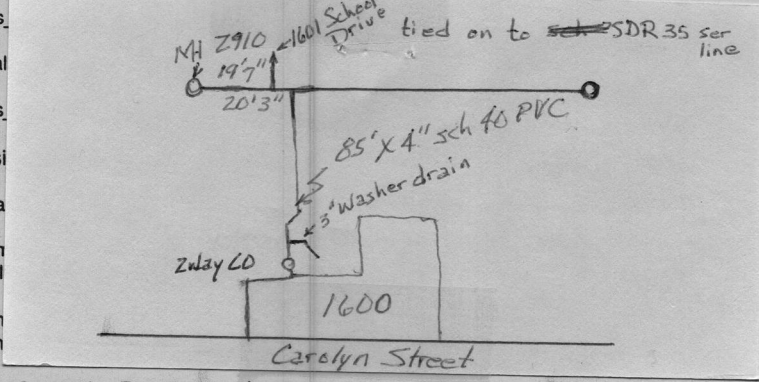 MH 2910
1601 School
Drive
tied on to SDR 35 ser
line
19'7"
20'3"
85' X 4" sch 40 PVC
3" Washer drain
2way CO
1600
Carolyn Street